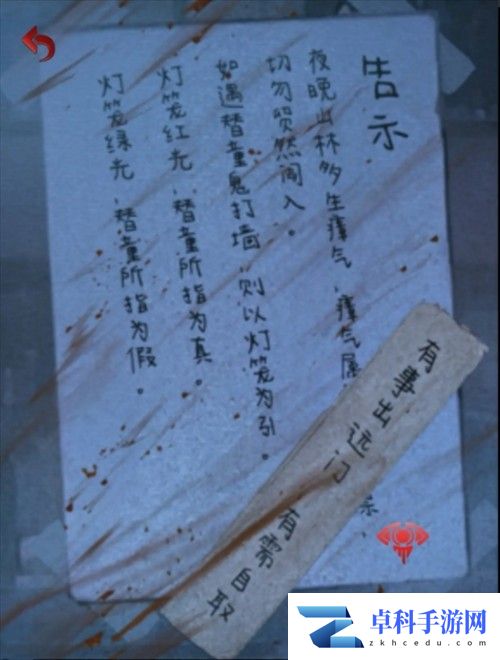 告示
夜晚山林多生瘴气，瘴气属
切勿贸然闯入。
如遇替童鬼打墙，则以灯笼为引。
灯笼红光，替童所指为真。
灯笼绿光，替童所指为假。
有事出远门
有需自取
卓科手游网
www.zkhcedu.com